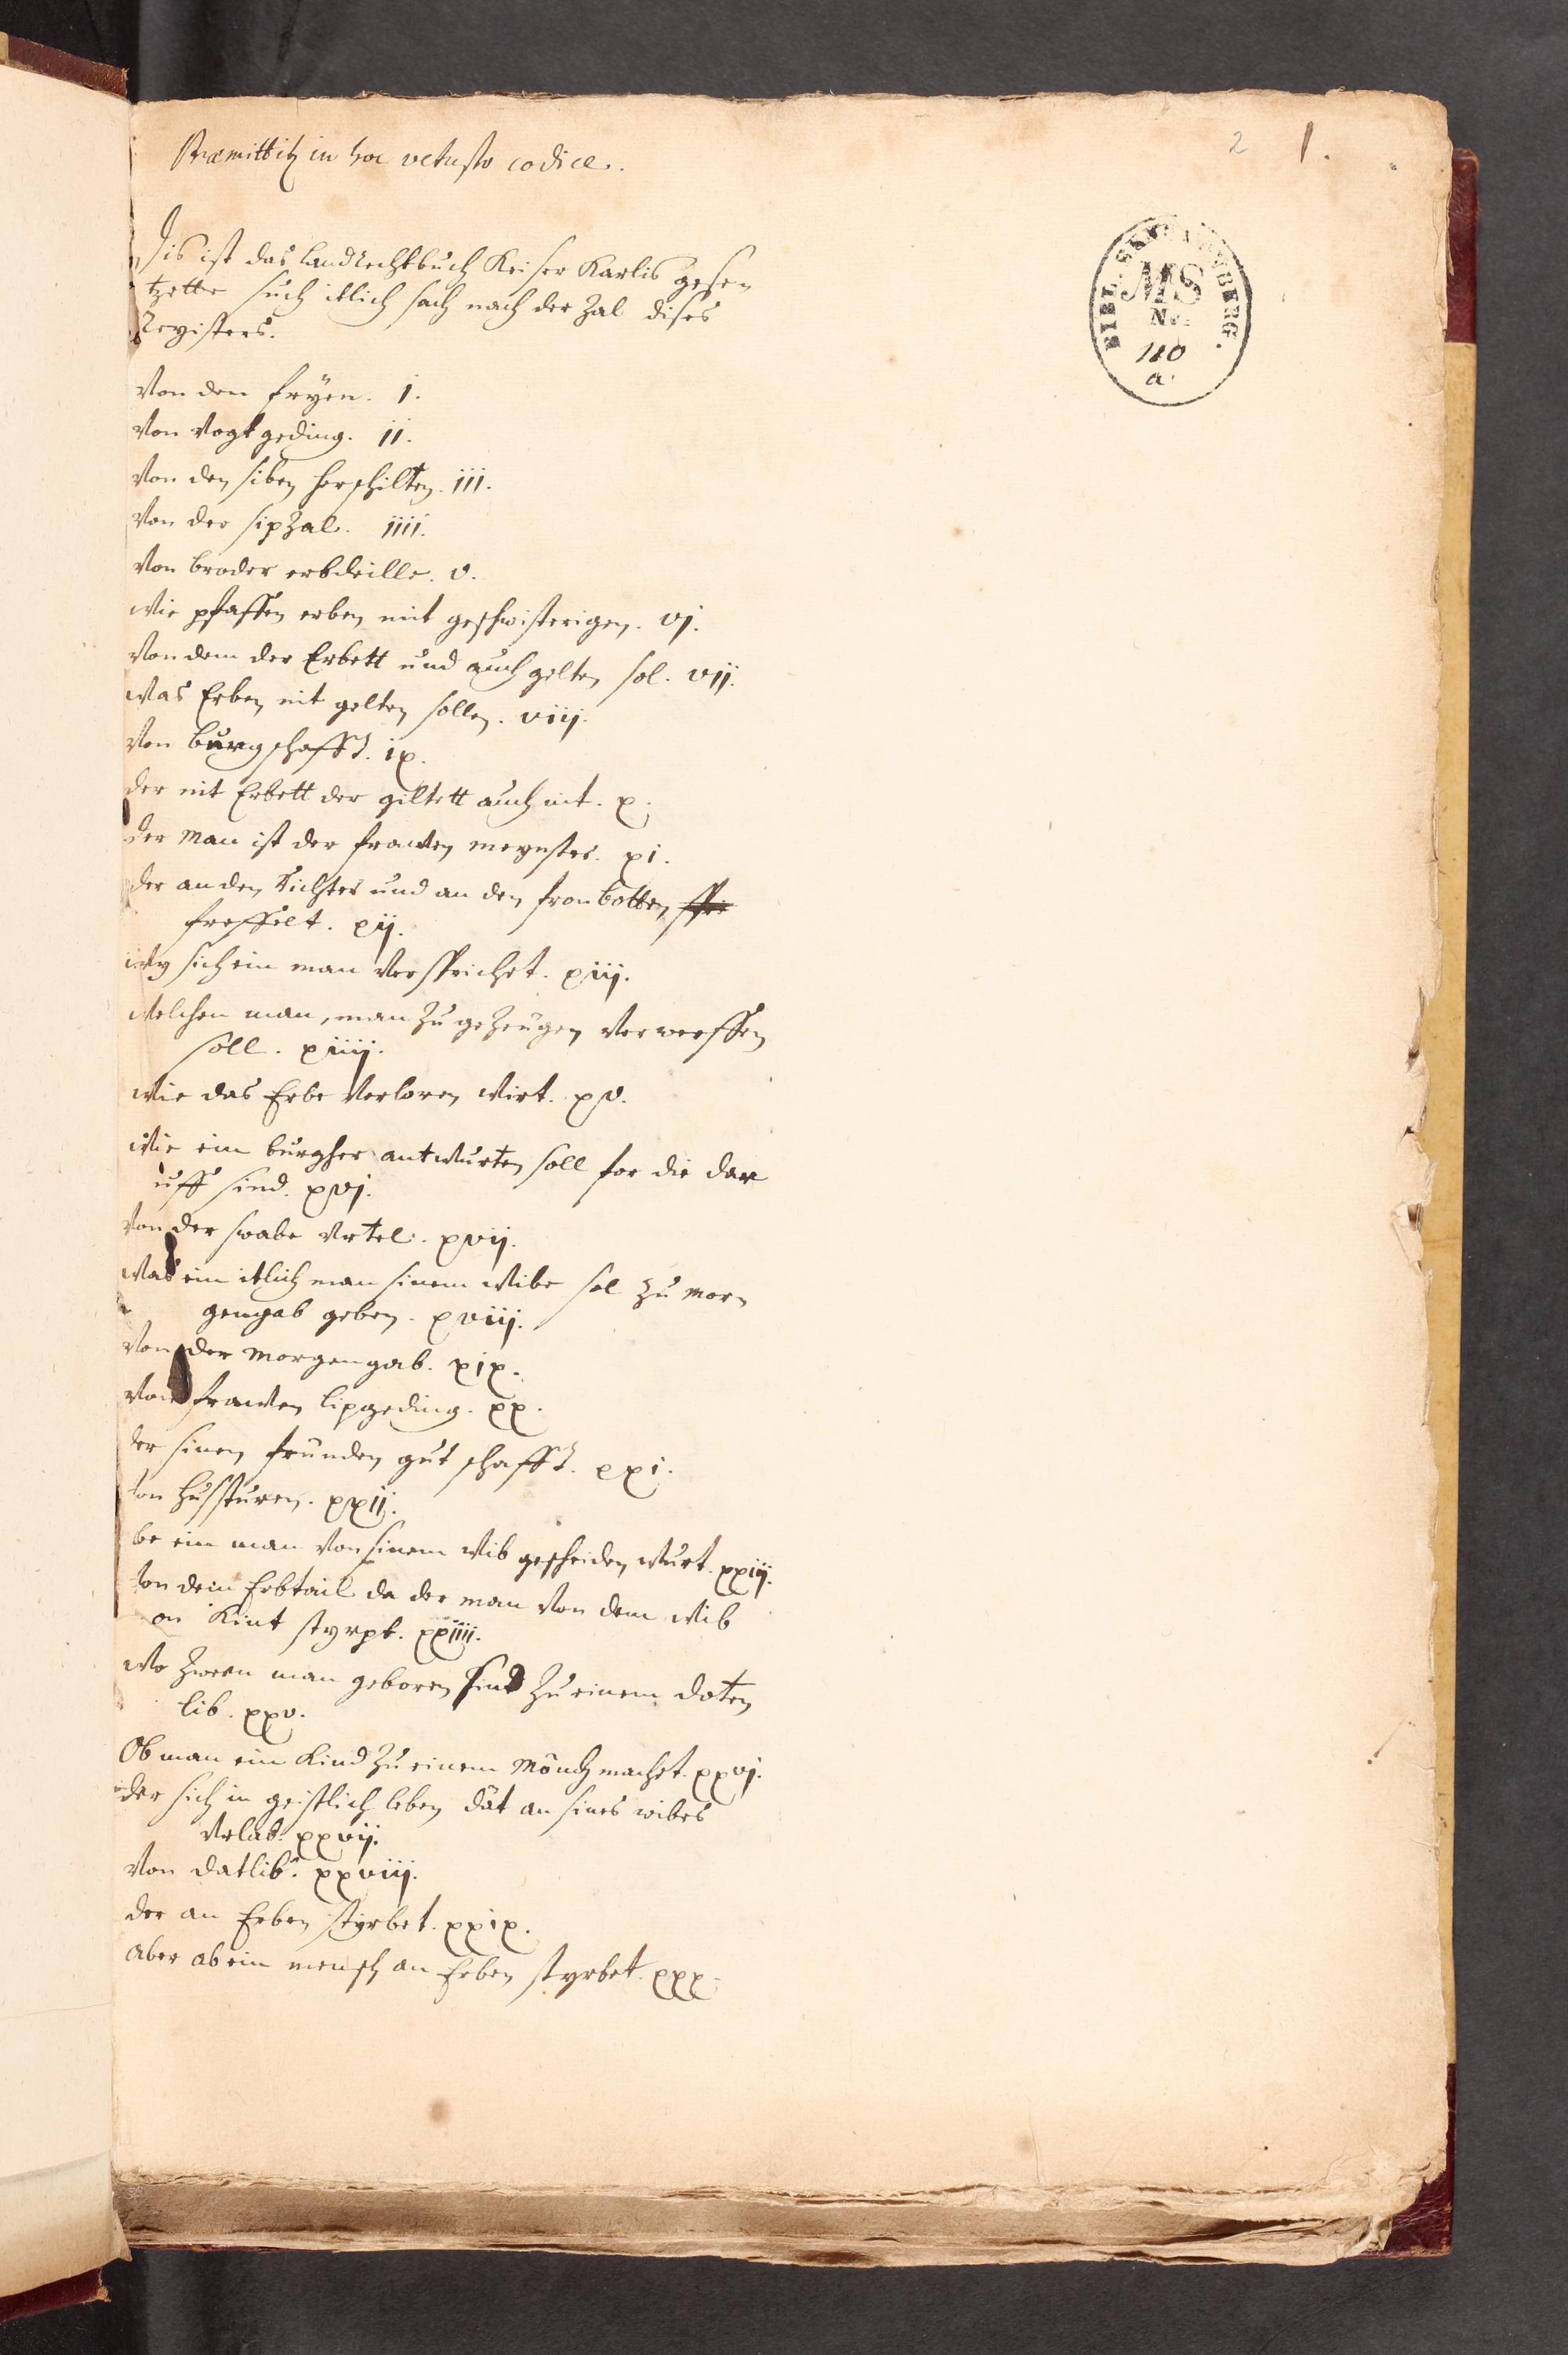 Præmittitur in hoc vetusto codice.
2 1.
Dis ist das landrechtbuch Keiser Karlis gesen
tzette such itlich sach nach der zal dises
Registers.
BIBL. SENCKENBERG.
MS
No.
110
a.
Von den fryen. i.
Von Vogtgeding. ii.
Von den siben herschilten. iii.
Von der sipzal. iiii.
Von bruder erbdeille. v.
Wie pfaffen erben mit geschwisterigen. vj.
Von dem der Erbett und auch gelten sol. vij.
Was Erben nit gelten sollen. viij.
Von burgschafft. ix.
der nit Erbett der giltett auch nit. x.
der Man ist der frawen meynster. xi.
der an den Richter und an den fronbotten
freffelt. xij.
Wy sich ein man Versprichet. xiij.
Welchen man, man zu gezeugen Verwerffen
soll. xiiij.
Wie das Erbe Verloren Wirt. xv.
Wie ein burgher antwurten soll for die dar
uff sind. xvj.
Von der swabe Vrtel. xvij.
Was ein itlich man sinem Wibe sol zu mor
gengab geben. xviij.
Von der Morgengab. xix.
Von frawen lipgeding. xx.
der sinen frunden gut schafft. xxi.
von hussturen. xxij.
be ein man Von sinem Wib gescheiden Wurt. xxiij.
Von dem Erbtail da der man Von dem Wib
on Kint styrpt. xxiiij.
Wo zween man geboren sind zu einem doten
lib. xxv.
Ob man ein Kind zu einem Mönch machet. xxvj.
der sich in geistlich leben dät an sines wibes
Vrlab. xxvij.
Von datlib. xxviij.
der an Erben styrbet. xxix.
Aber ab ein mensch an Erben styrbet. xxx.